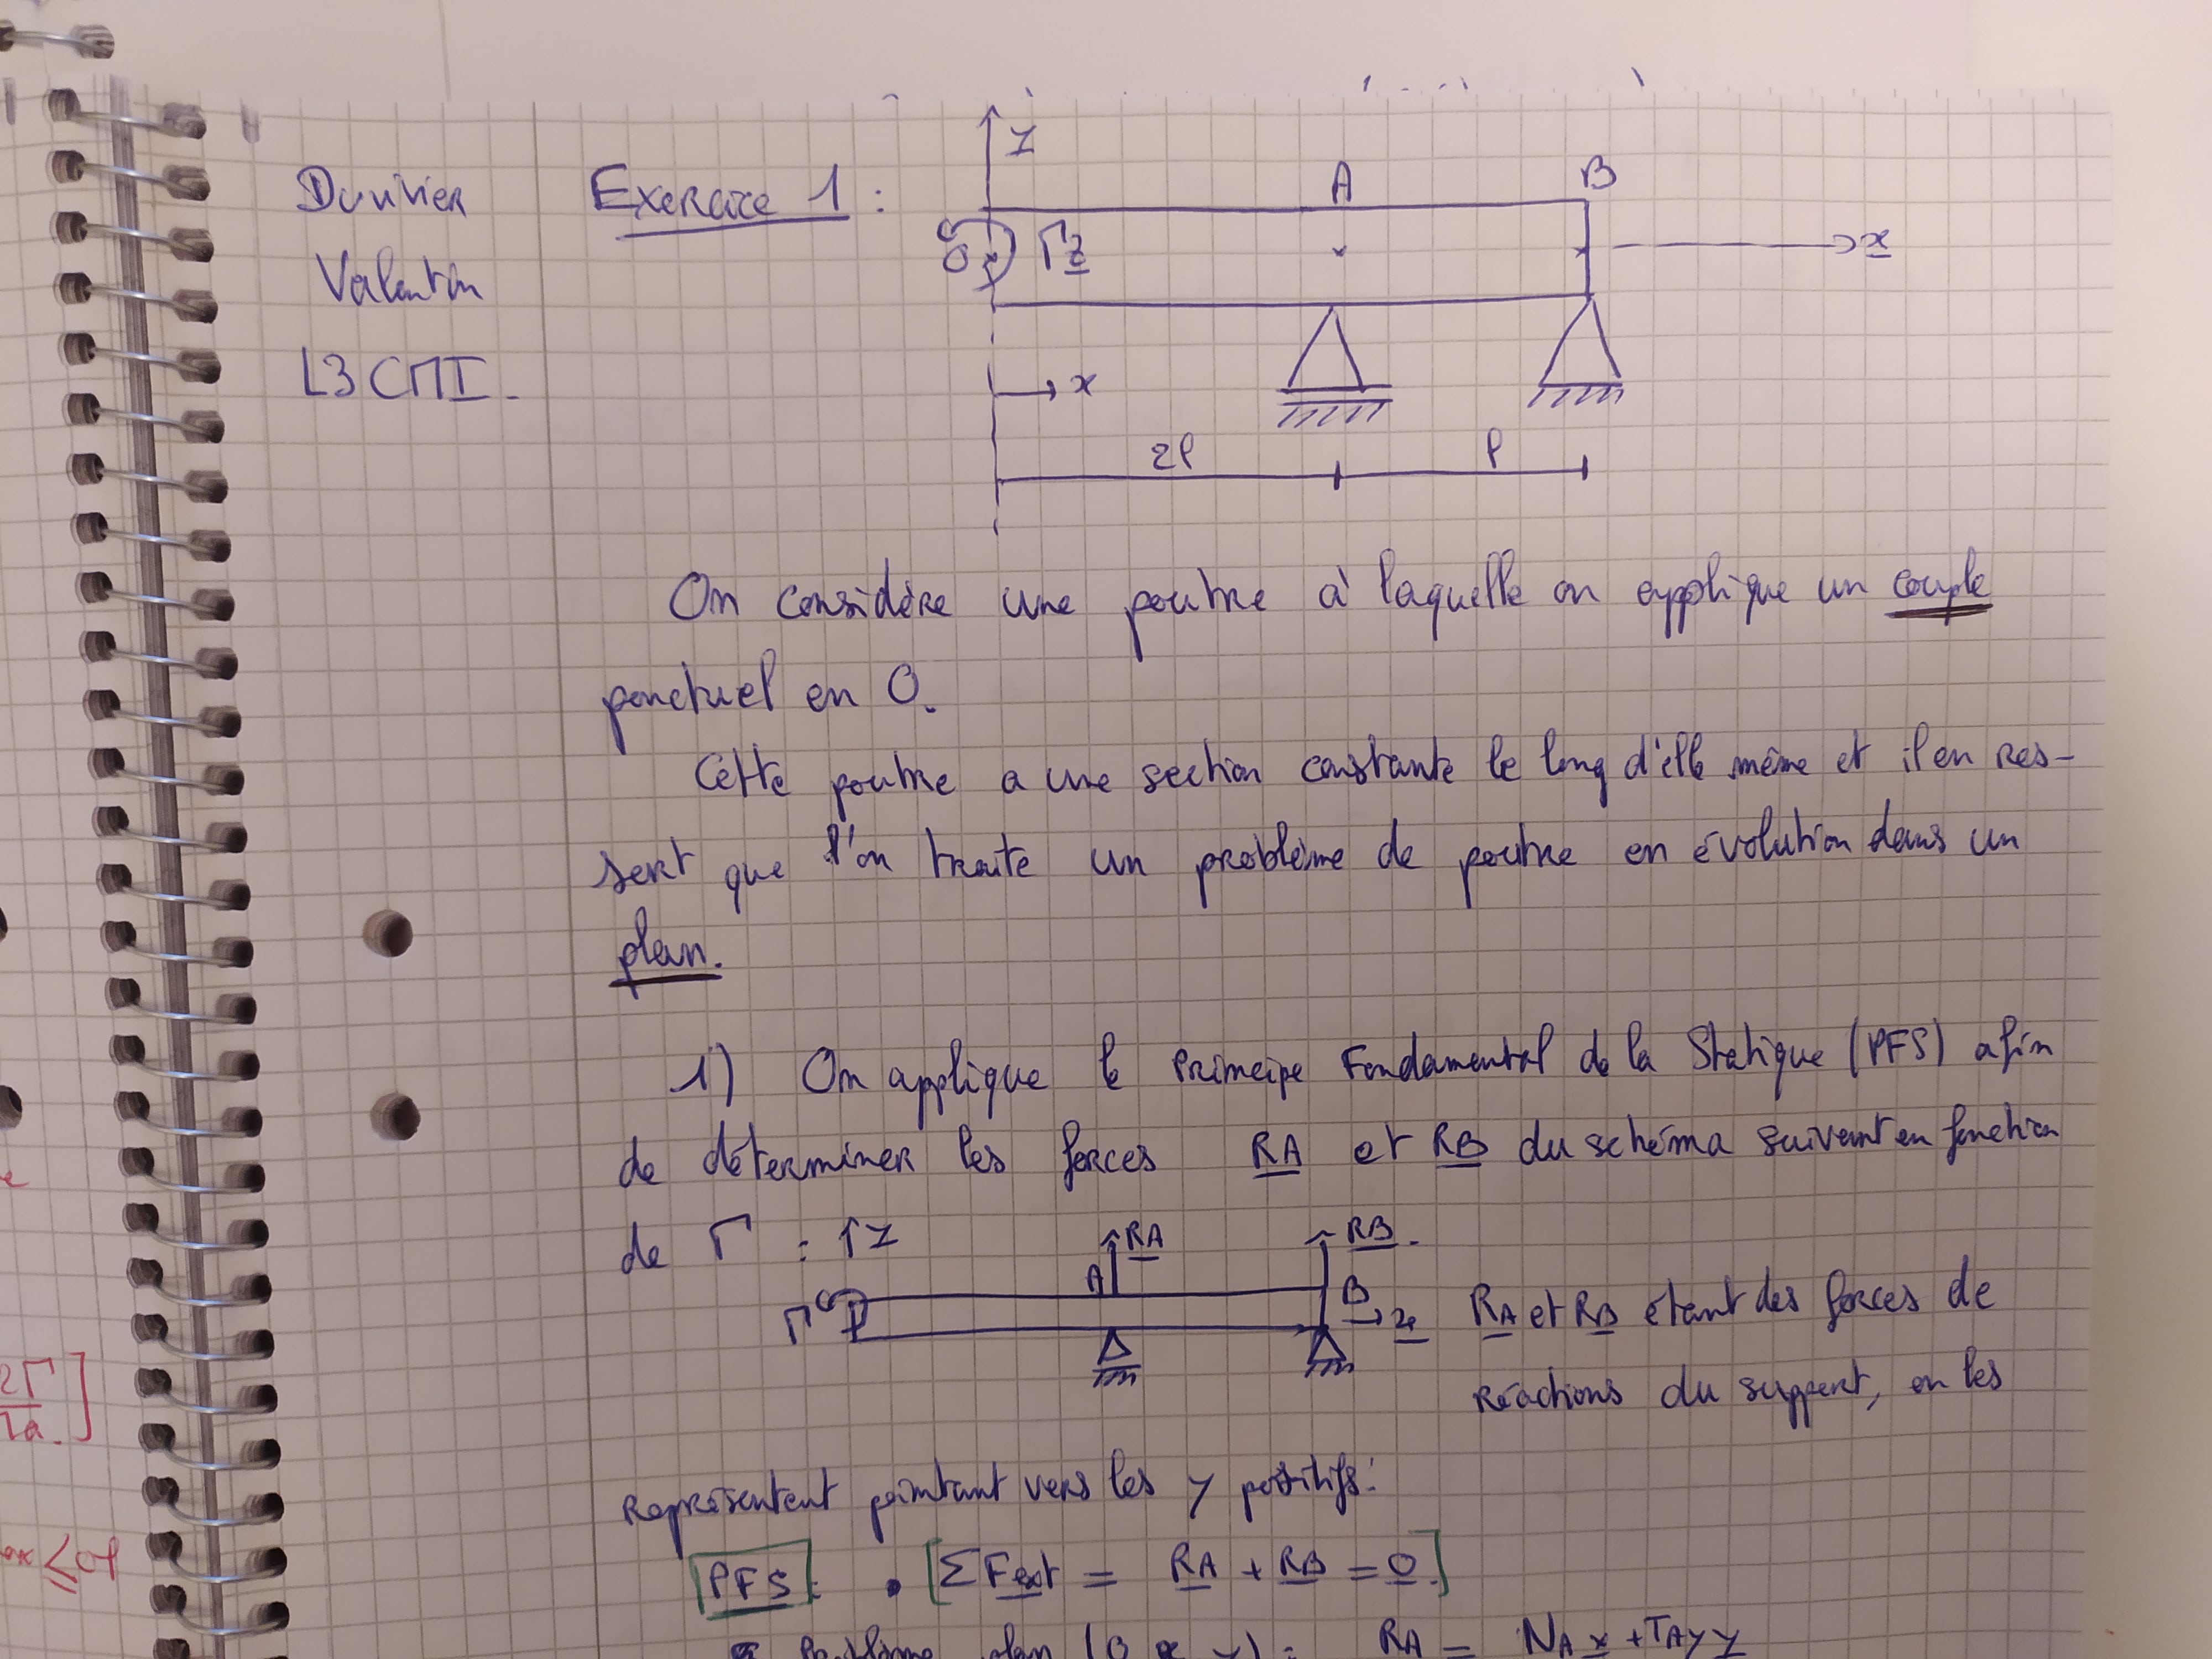 Exercice 1 :
Valentin
L3 CMI.
y
A
B
O
Γz
x
x
2l
l
On considère une poutre à laquelle on applique un couple
ponctuel en O.
Cette poutre a une section constante le long d'elle même et il en res-
sort que l'on traite un problème de poutre en évolution dans un
plan.
1) On applique le Principe Fondamental de la Statique (PFS) afin
de déterminer les forces RA et RB du schéma suivant en fonction
de Γ :
RA
RB
A
B
Γ
x
RA et RB étant des forces de
réactions du support, on les
représentent pointant vers les y positifs:
PFS : • [ΣFext = RA + RB = 0.]
Problème plan (O x y) : RA = NA x + TAy y
2Γ
≤